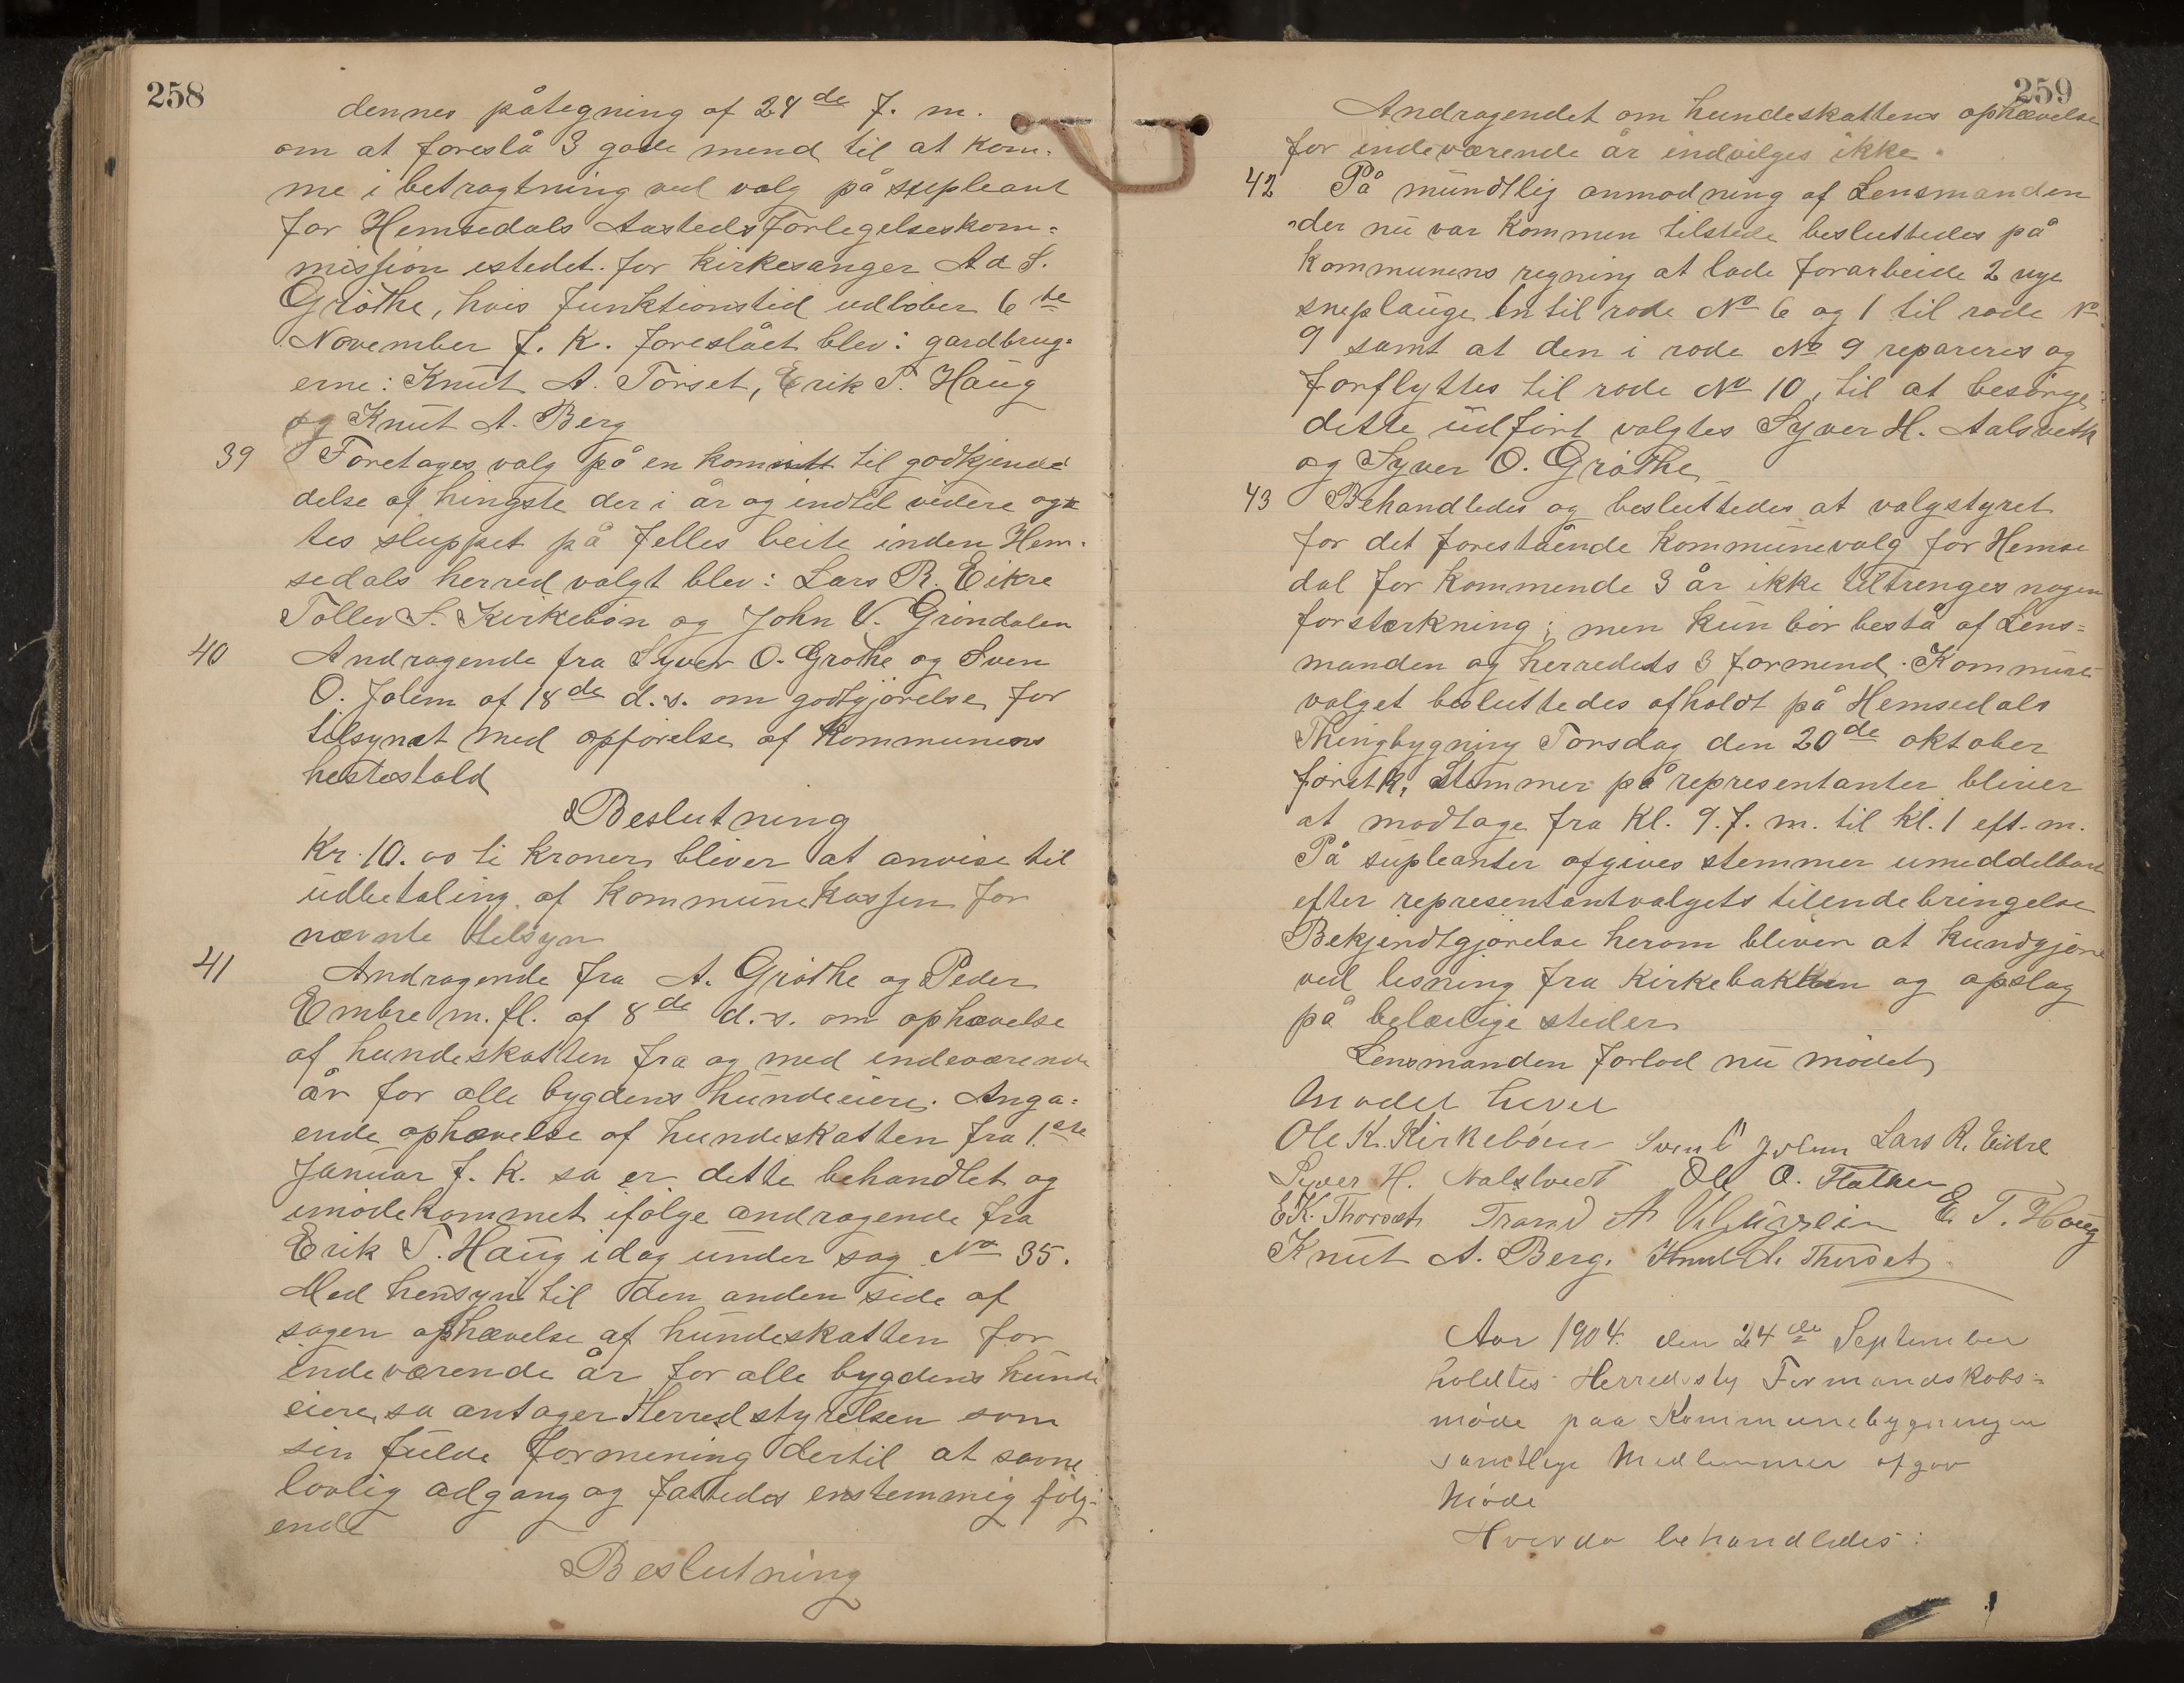 258
dennes påtegning af 24de f. m.
om at foreslå 3 gode mend til at kom-
me i betragtning ved valg på supleant
for Hemsedals Aastedsforlegelseskom=
mission istedet for kirkesanger A d S.
Grøthe, hvis funktionstid udløber 6te
November f. k. foreslået blev: gardbrug=
erne: Knut A. Torset, Erik T. Haug
og Knut A. Berg
39 Foretages valg på en komitt til godkjende
delse af hingste der i år og indtil videre agt
tes sluppet på felles beite inden Hem-
sedals herred valgt blev: Lars R. Eikre
Tollev S. Kirkebøn og John V. Grøndalen
40 Andragende fra Syver O. Grøthe og Sven
O. Jolem af 18de d.s. om godtgjørelse for
tilsynet med opførelse af kommunens
hestestald
Beslutning
Kr. 10.00 ti kroner bliver at anvise til
udbetaling af kommunekassen for
nævnte tilsyn
41 Andragende fra A. Grøthe og Peder
Embre m. fl. af 8de d.s. om ophævelse
af hundeskatten fra og med indeværende
år for alle bygdens hundeeiere. Anga=
ende ophævelse af hundeskatten fra 1ste
Januar f. k. sa er dette behandlet og
imødekommet ifølge andragende fra
Erik T. Haug idag under sag No 35.
Med hensyn til den anden side af
sagen ophævelse af hundeskatten for
indeværende år for alle bygdens hunde
eiere, sa antager Herredstyrelsen som
sin fulde formening dertil at savne
lovlig adgang og fattedes enstemmig følg-
ende
Beslutning
259
Andragendet om hundeskattens ophævelse
for indeværende år indvilges ikke.
42 På mundtlig anmodning af Lensmanden
der nu var kommen tilstede besluttedes på
kommunens regning at lade forarbeide 2 nye
sneplauge en til rode No 6 og 1 til rode No
9 samt at den i rode No 9 repareres og
forflyttes til rode No 10, til at besørge
dette udført valgtes Syver H. Aalsveth
og Syver O. Grøthe
43 Behandledes og besluttedes at valgstyret
for det forestående kommunevalg for Hemse
dal for kommende 3 år ikke tiltrenges nogen
forsterkning; men kun bør bestå af Lens=
manden og herredets 3 formend. Kommune
valget besluttedes afholdt på Hemsedals
Thingbygning Torsdag den 20de oktober
førstk. Stemmer på representanter bliver
at modtage fra Kl. 9. f. m. til kl. 1 eft. m.
På supleanter afgives stemmer umiddelbart
efter representantvalgets tilendebringelse
Bekjendtgjørelse herom bliver at kundgjøre
ved lesning fra Kirkebakken og opslag
på beleilige steder
Lensmanden forlod nu mødet
Mødet hevet
Ole K. Kirkebøen Sven O Jolem Lars R. Eikre
Syver H. Aalsvedt Ole O. Flathen
E K. Thorset Trond A E. T. Haug
Knut A. Berg. Knut A. Thorset
Aar 1904. den 24de September
holdtes Herredsty Formandskabs=
møde paa Kommunebygningen
samtlige Medlemmer afgav
Møde
Hvorda behandledes: